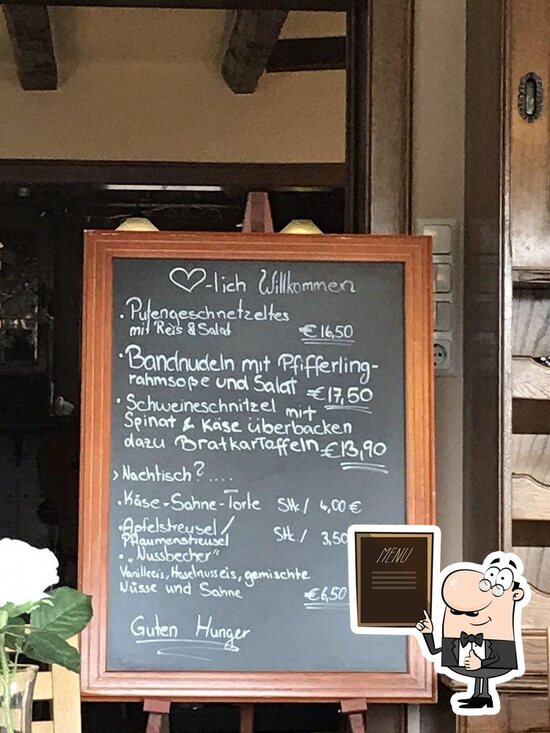 ♡-lich Willkommen
• Putengeschnetzeltes
mit Reis & Salat €16,50
• Bandnudeln mit Pfifferling-
rahmsoße und Salat €17,50
• Schweineschnitzel mit
Spinat & Käse überbacken
dazu Bratkartoffeln €13,90
> Nachtisch?....
• Käse-Sahne-Torte Stk/ 4,00€
• Apfelstreusel/
Pflaumenstreusel Stk./ 3,50
• "Nussbecher"
Vanilleeis, Haselnusseis, gemischte
Nüsse und Sahne €6,50
Guten Hunger
MENU